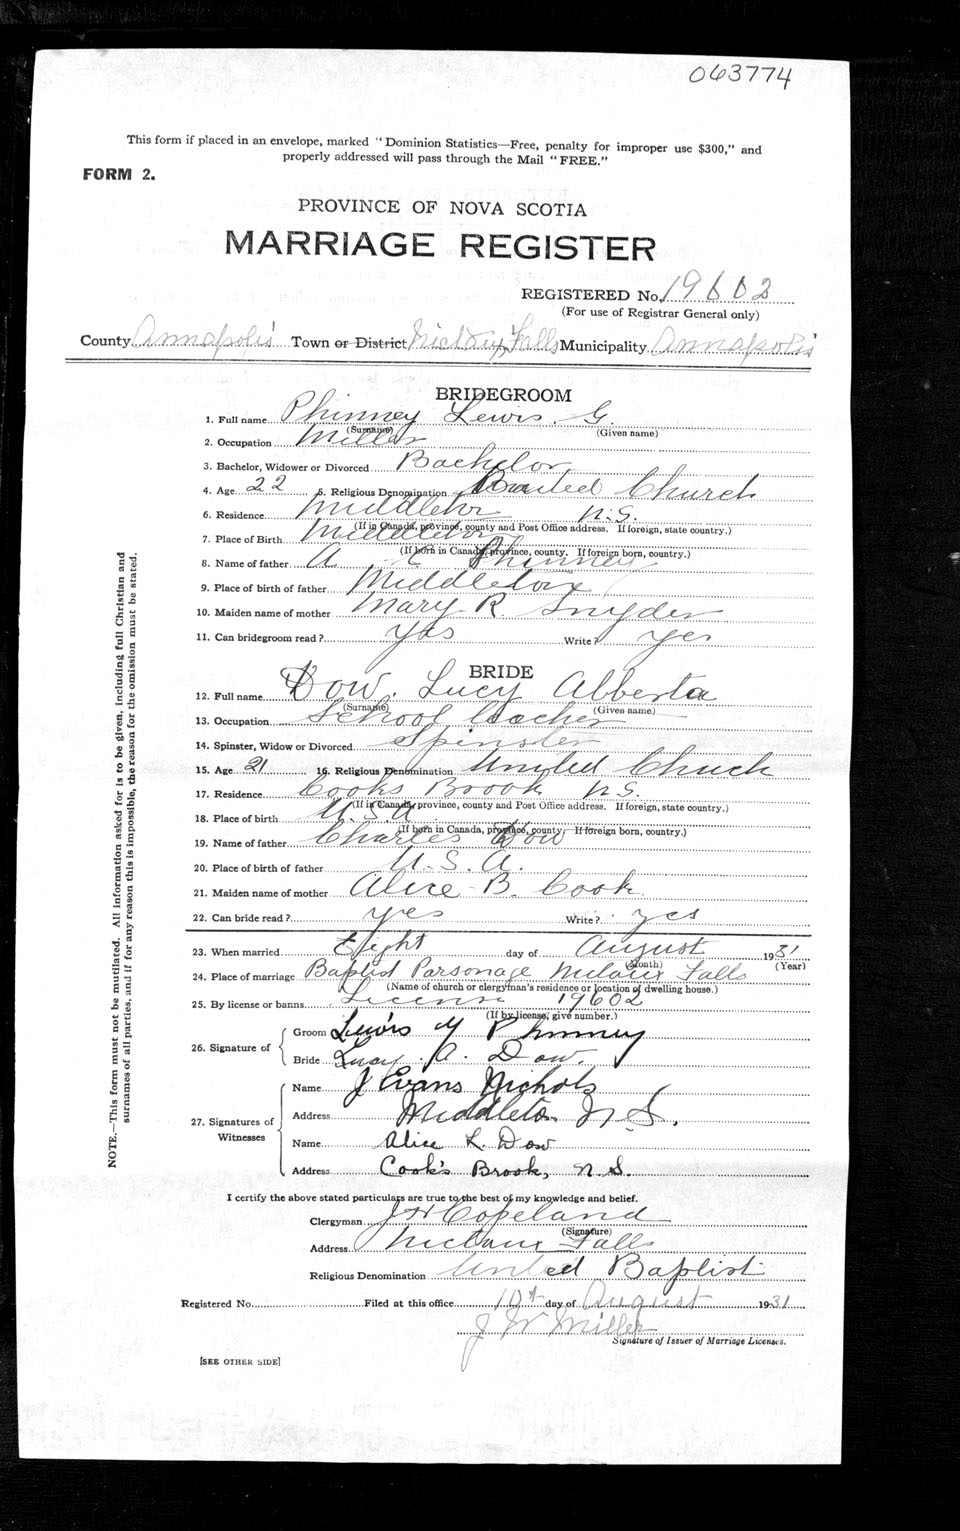 063774
This form if placed in an envelope, marked "Dominion Statistics—Free, penalty for improper use $300," and
properly addressed will pass through the Mail "FREE."
FORM 2.
PROVINCE OF NOVA SCOTIA
MARRIAGE REGISTER
REGISTERED No. 19602
(For use of Registrar General only)
County Annapolis Town or District Nictaux Falls Municipality Annapolis
BRIDEGROOM
1. Full name Phinney Lewis G.
(Surname) (Given name)
2. Occupation Miller
3. Bachelor, Widower or Divorced Bachelor
4. Age 22 5. Religious Denomination United Church
6. Residence Middleton N.S.
(If in Canada, province, county and Post Office address. If foreign, state country.)
7. Place of Birth Middleton
(If born in Canada, province, county. If foreign born, country.)
8. Name of father A. C. Phinney
9. Place of birth of father Middleton
10. Maiden name of mother Mary R Snyder
11. Can bridegroom read? yes Write? yes
BRIDE
12. Full name Dow. Lucy Alberta
(Surname) (Given name)
13. Occupation School teacher
14. Spinster, Widow or Divorced Spinster
15. Age 21 16. Religious Denomination United Chuch
17. Residence Cooks Brook N.S.
(If in Canada, province, county and Post Office address. If foreign, state country.)
18. Place of birth U.S.A.
(If born in Canada, province, county. If foreign born, country.)
19. Name of father Charles Dow
20. Place of birth of father U.S.A.
21. Maiden name of mother Alice B. Cook
22. Can bride read? yes Write? yes
23. When married Eight day of August 1931
(Month) (Year)
24. Place of marriage Baptist Parsonage Nictaux Falls
(Name of church or clergyman's residence or location of dwelling house.)
25. By license or banns License 19602
(If by license, give number.)
26. Signature of Groom Lewis G Phinney
Bride Lucy A. Dow.
27. Signatures of Witnesses
Name J Evans Nichols
Address Middleton, N.S.
Name Alice L. Dow
Address Cook's Brook, N.S.
I certify the above stated particulars are true to the best of my knowledge and belief.
Clergyman Copeland
(Signature)
Address Nictaux Falls
Religious Denomination United Baptist
Registered No. Filed at this office 10th day of August 1931
J W Miller
Signature of Issuer of Marriage Licenses.
[SEE OTHER SIDE]
NOTE.—This form must not be mutilated. All information asked for is to be given, including full Christian and
surnames of all parties, and if for any reason this is impossible, the reason for the omission must be stated.